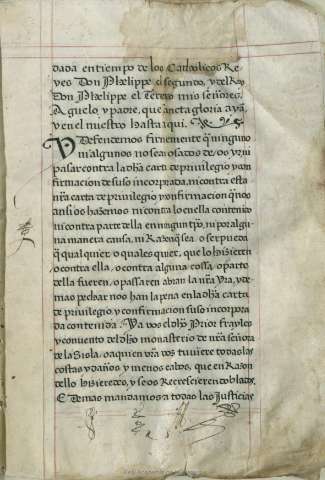 dada en tiempo de los Catholicos Re
yes Don Phelippe el segundo, y del Rey
Don Phelippe el Tercero mis señores,
Aguelo, y padre, que ancta gloria ayā,
y en el nuestro hasta aqui.
Y Defendemos firmemente q̃ ninguno
ni algunos no sean osados de os yr ni
pasar contra la dha carta de privilegio y con
firmacion de suso incorporada, ni contra esta
nr̃a carta de privilegio y confirmacion q̃ nos
ansi os hazemos ni contra lo en ella contenido
ni contra parte della en ningun tpo, ni por algu
na manera causa, ni Razon q̃ sea o ser pueda
q̃ qual quier o quales quier, que lo hisieren
o contra ella, o contra alguna cossa, o parte
della fueren, o passaren abran la nr̃a Yra, y de
mas pechar nos han la pena en la dha carta
de privilegio y confirmacion suso incorpora
da contenida. Y a vos el dho Prior frayles
y convento del dho monasterio de nr̃a señora
de la Sisla o a quien vr̃a vos tuviere todas las
costas y daños, y menos cabos, que en Razon
dello hisieredes, y se os Recrescieren doblados.
E Demas mandamos a todas las Justicias